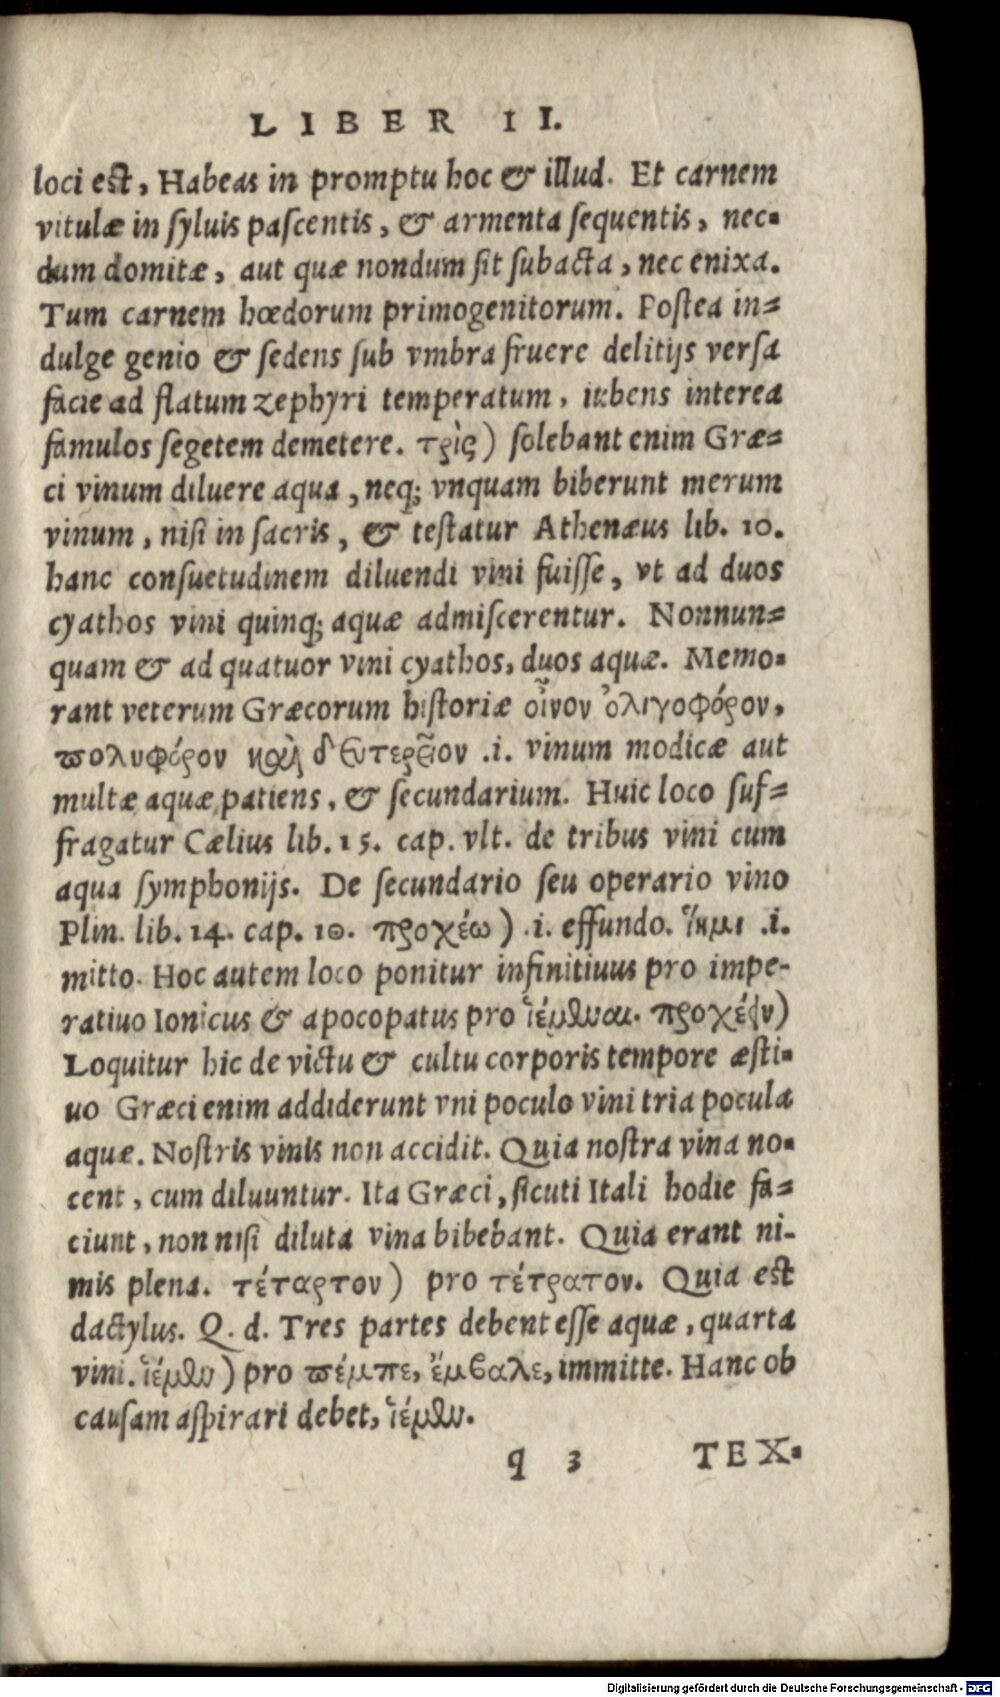 LIBER II.
loci est, Habeas in promptu hoc & illud. Et carnem
vitulæ in syluis pascentis, & armenta sequentis, nec-
dum domitæ, aut quæ nondum sit subacta, nec enixa.
Tum carnem hœdorum primogenitorum. Postea in-
dulge genio & sedens sub vmbra fruere delitijs versa
facie ad flatum zephyri temperatum, iubens interea
famulos segetem demetere. τρὶς) solebant enim Græ-
ci vinum diluere aqua, neq; vnquam biberunt merum
vinum, nisi in sacris, & testatur Athenæus lib. 10.
hanc consuetudinem diluendi vini fuisse, vt ad duos
cyathos vini quinq; aquæ admiscerentur. Nonnun-
quam & ad quatuor vini cyathos, duos aquæ. Memo-
rant veterum Græcorum historiæ οἶνον ὀλιγοφόρον,
πολυφόρον καὶ δευτερεῖον .i. vinum modicæ aut
multæ aquæ patiens, & secundarium. Huic loco suf-
fragatur Cælius lib. 15. cap. vlt. de tribus vini cum
aqua symphonijs. De secundario seu operario vino
Plin. lib. 14. cap. 10. προχέω) .i. effundo. ἵημι .i.
mitto. Hoc autem loco ponitur infinitiuus pro impe-
ratiuo Ionicus & apocopatus pro ἱέμεναι. προχέειν)
Loquitur hic de victu & cultu corporis tempore æsti-
uo Græci enim addiderunt vni poculo vini tria pocula
aquæ. Nostris vinis non accidit. Quia nostra vina no-
cent, cum diluuntur. Ita Græci, sicuti Itali hodie fa-
ciunt, non nisi diluta vina bibebant. Quia erant ni-
mis plena. τέταρτον) pro τέτρατον. Quia est
dactylus. Q. d. Tres partes debent esse aquæ, quarta
vini. ἱέμεν) pro πέμπε, ἔμβαλε, immitte. Hanc ob
causam aspirari debet, ἱέμεν.
q 3 TEX-
Digitalisierung gefördert durch die Deutsche Forschungsgemeinschaft - DFG